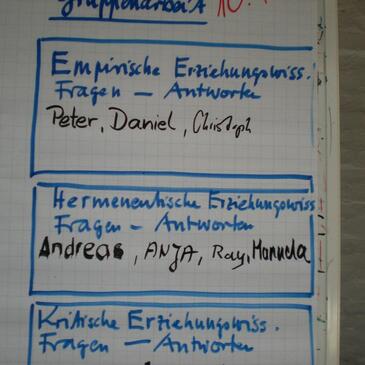 Gruppenarbeit
Empirische Erziehungswiss.
Fragen – Antworten
Peter, Daniel, Christoph
Hermeneutische Erziehungswiss
Fragen – Antworten
Andreas, ANJA, Ray, Manuela
Kritische Erziehungswiss.
Fragen – Antworten